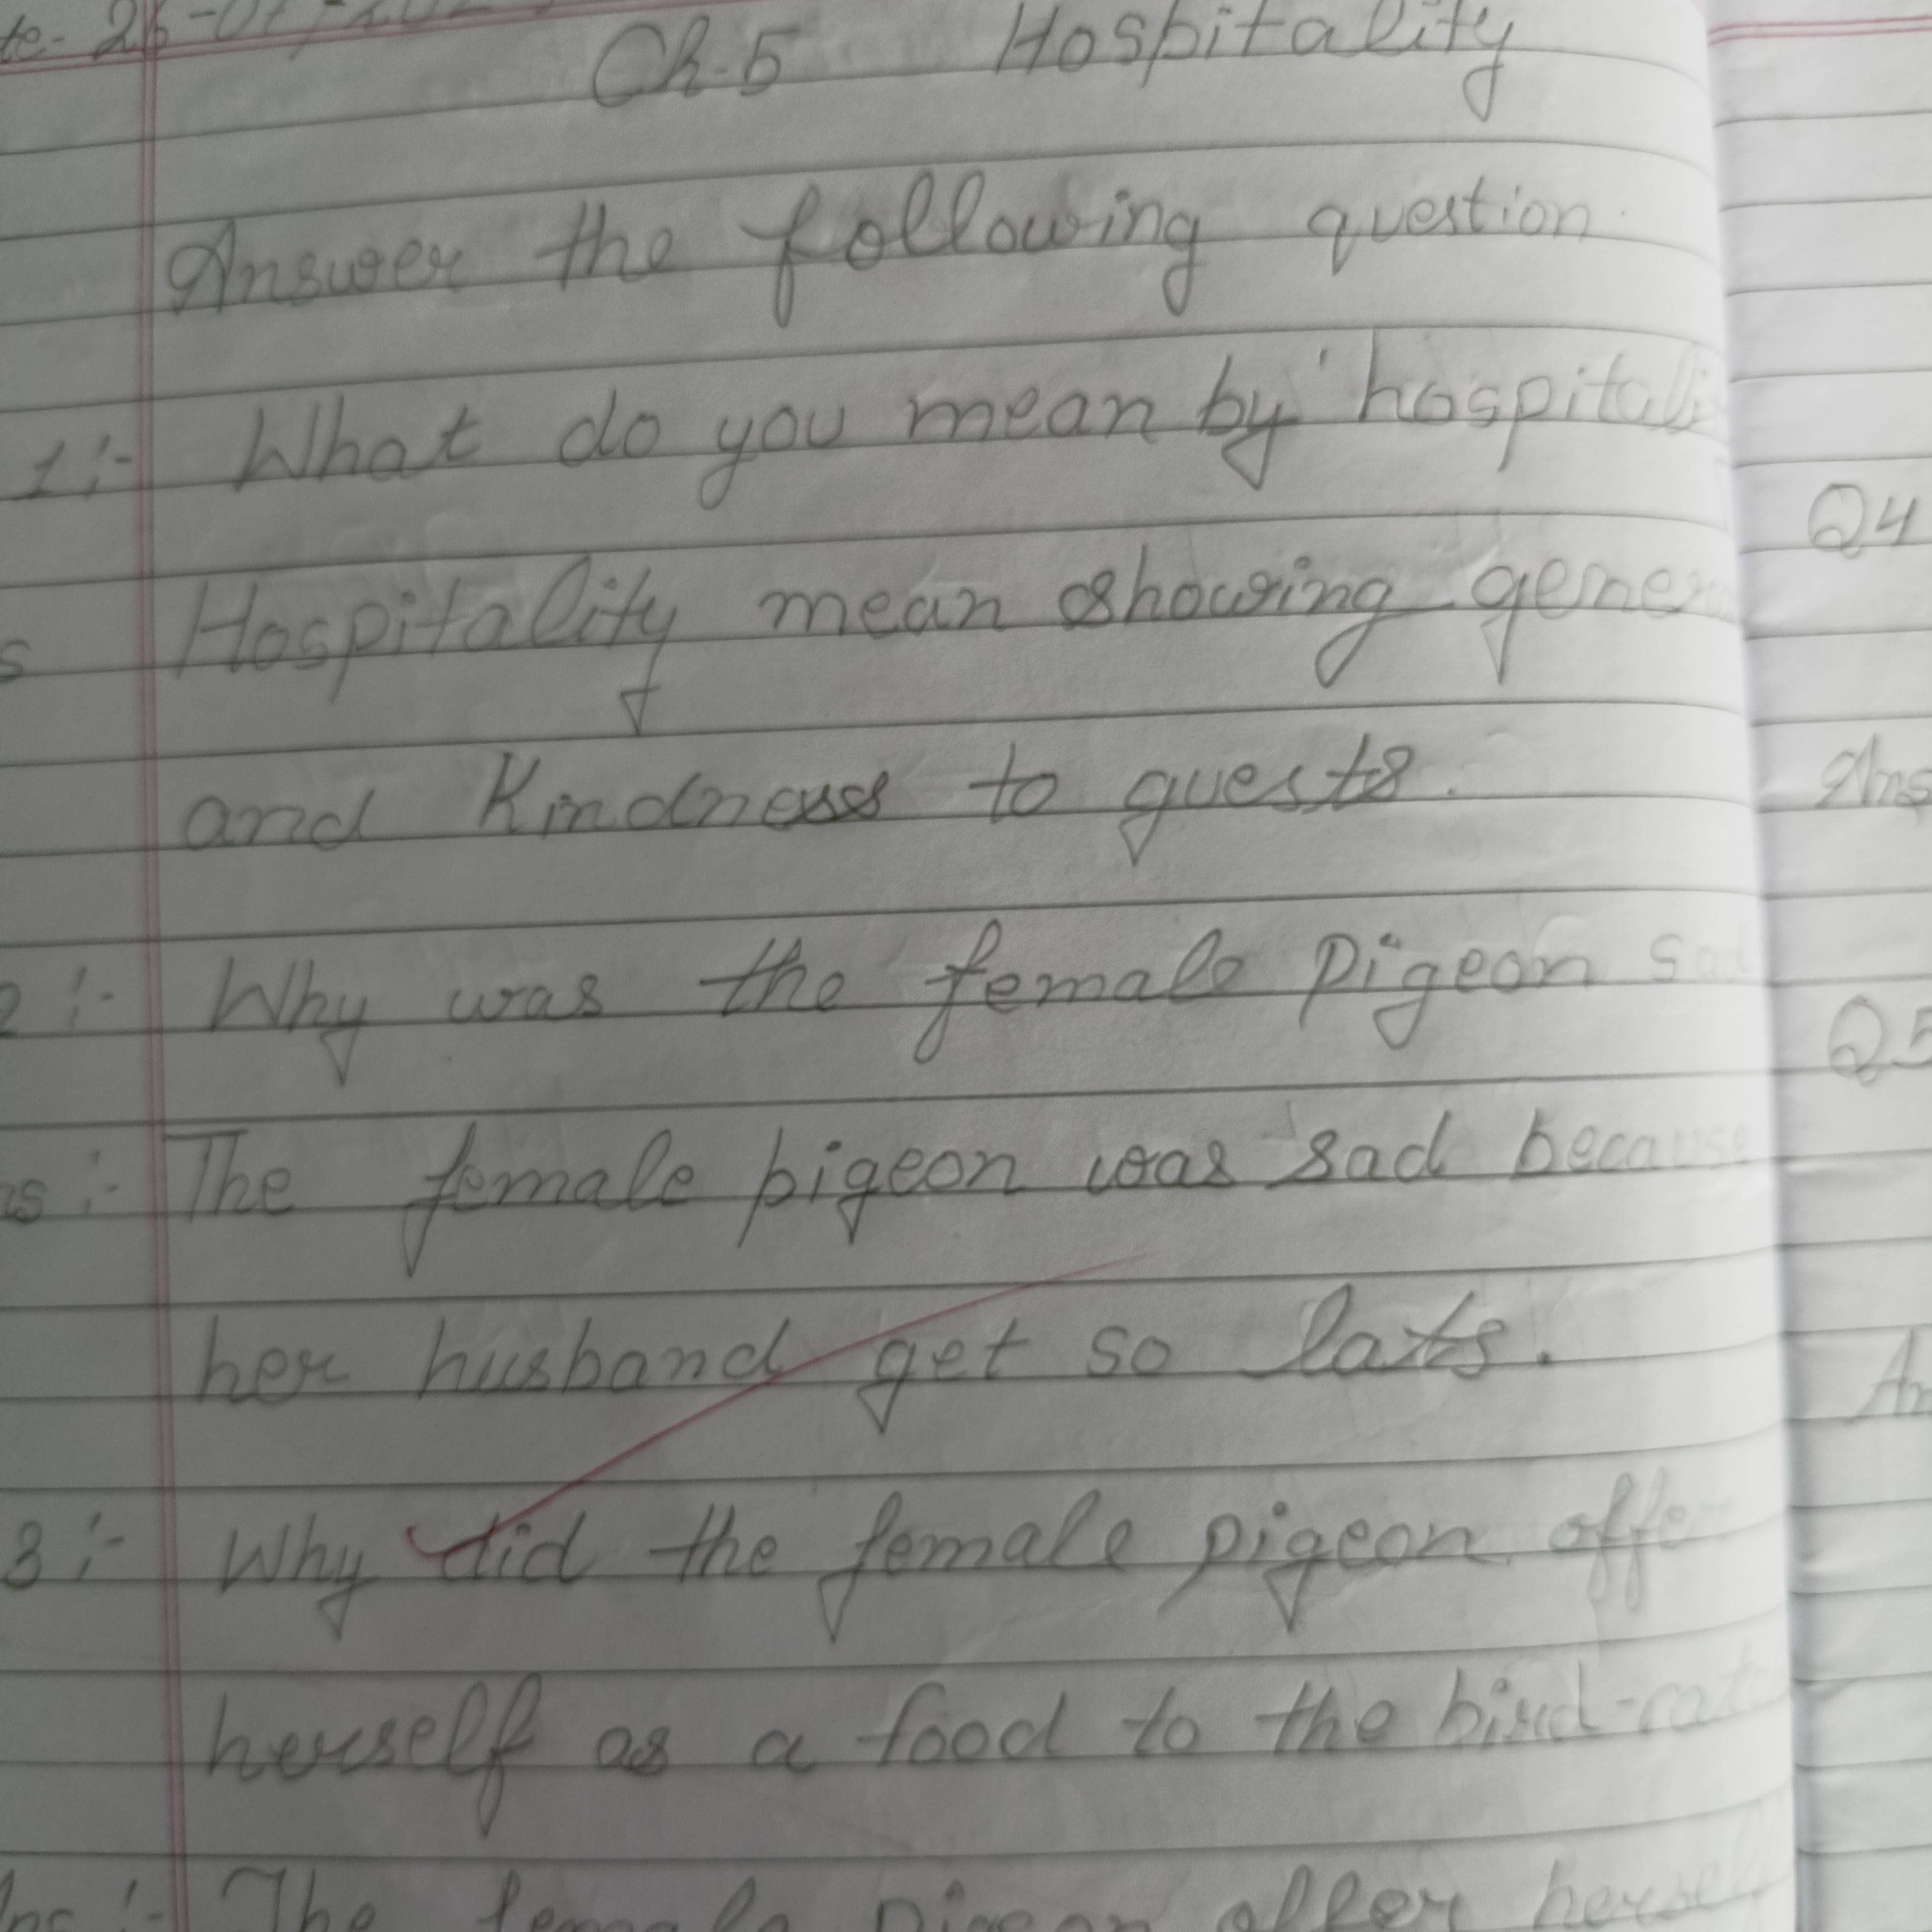 Ch-5 Hospitality
Answer the following question
1:- What do you mean by 'hospitali
s Hospitality mean showing gener
and Kindness to guests.
2:- Why was the female pigeon sad
ns:- The female pigeon was sad because
her husband get so late.
3:- Why did the female pigeon offer
herself as a food to the bird-cat
Ans:- The female pigeon offer herself
Q4
Ans
Q5
An